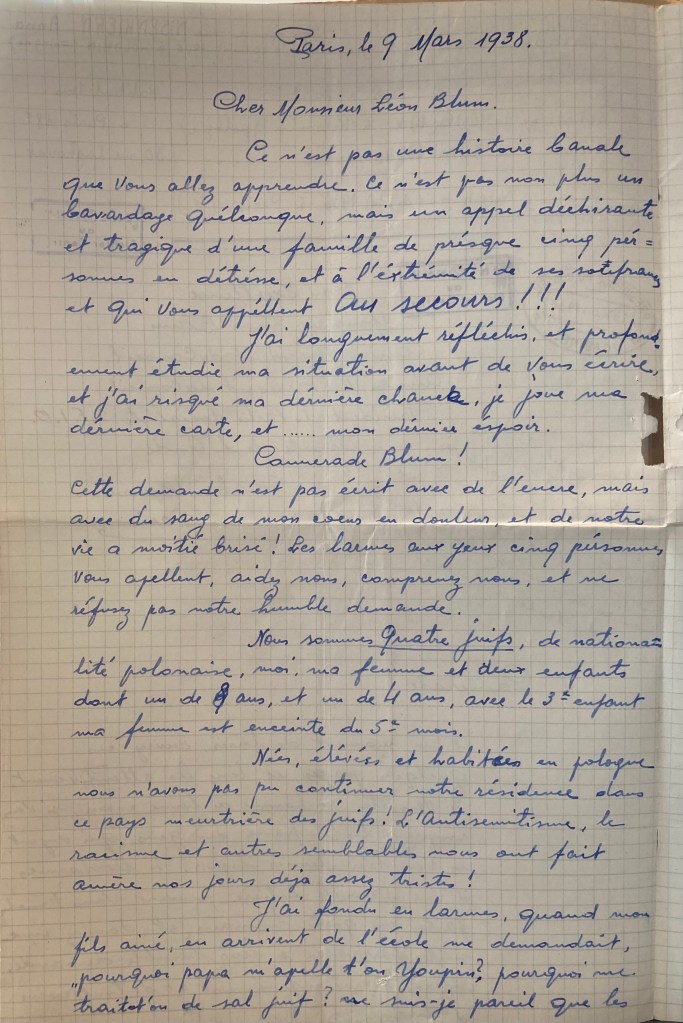 Paris, le 9 Mars 1938.
Cher Monsieur Léon Blum.
Ce n'est pas une histoire banale
que Vous allez apprendre. Ce n'est pas non plus un
bavardage quélconque, mais un appel déchirante
et tragique d'une famille de présque cinq pér=
sonnes en détrésse, et à l'éxtrémité de ses
et qui Vous appéllent Au secours!!!
J'ai longuement réfléchis, et profond
ement étudie ma situation avant de Vous écrire,
et j'ai risqué ma dérnière chance, je joue ma
dérnière carte, et ...... mon dérnier éspoir.
Cammerade Blum!
Cette demande n'est pas écrit avec de l'encre, mais
avec du sang de mon coeur en douleur, et de notre
vie a moitié brisé! Les larmes aux yeux cinq pérsonnes
Vous apellent, aidez nous, comprenez nous, et ne
réfusez pas notre humble demande.
Nous sommes Quatre juifs, de nationa=
lité polonaise, moi, ma femme et deux enfants
dont un de ans, et un de 4 ans, avec le 3e enfant
ma femme est enceinte du 5e mois.
Nées, élévées et habitées en pologne
nous n'avons pas pu continuer notre résidence dans
ce pays meurtrière des juifs! L'Antisemitisme, le
racisme et autres semblables nous ont fait
amère nos jours déja assez tristes!
J'ai fondu en larmes, quand mon
fils ainé, en arrivent de l'école me demandait,
„pourquoi papa m'apelle t'on Youpin?, pourquoi me
traitat'on de sal juif? ne suis-je pareil que les